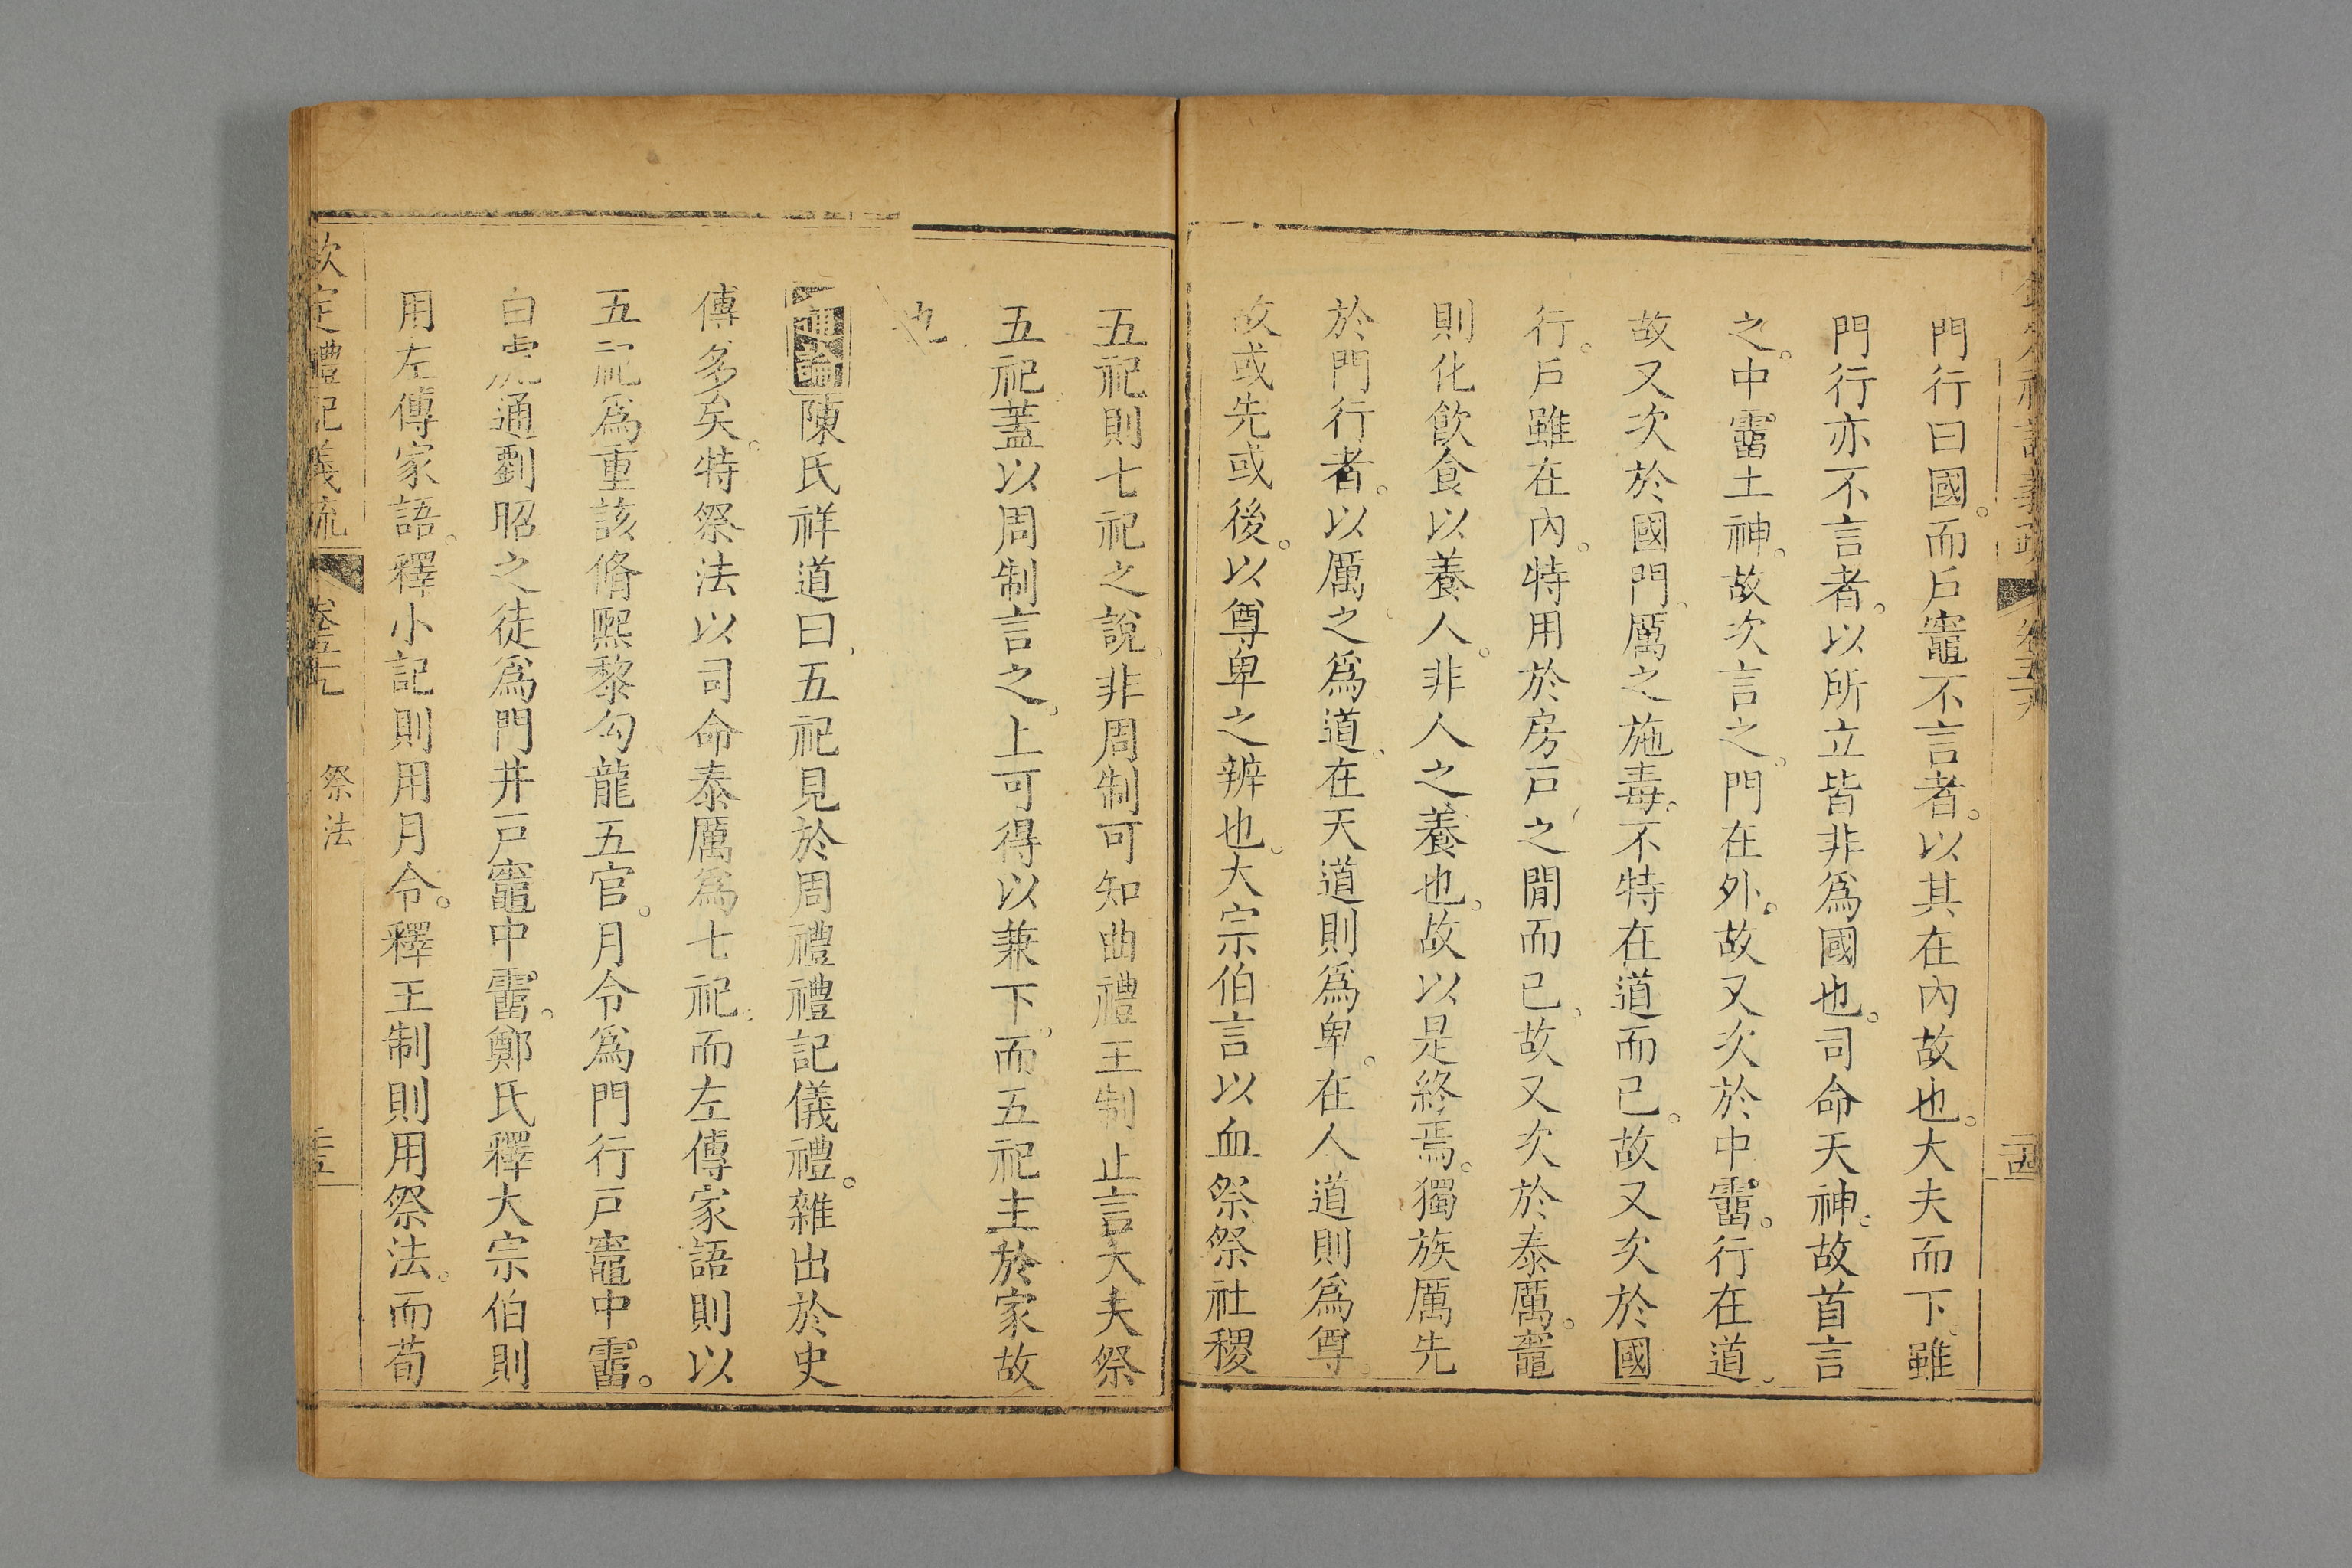 門行曰國。而戶竈不言者。以其在內故也。大夫而下。雖
門行亦不言者。以所立皆非爲國也。司命天神。故首言
之。中霤土神。故次言之。門在外。故又次於中霤。行在道。
故又次於國門。厲之施毒。不特在道而已。故又次於國
行。戶雖在內。特用於房戶之閒而已。故又次於泰厲。竈
則化飮食以養人。非人之養也。故以是終焉。獨族厲先
於門行者。以厲之爲道。在天道則爲卑。在人道則爲尊。
故或先或後。以尊卑之辨也。大宗伯言以血祭祭社稷
五祀則七祀之說。非周制可知曲禮王制止言大夫祭
五祀蓋以周制言之。上可得以兼下。而五祀主於家故
也
通論陳氏祥道曰。五祀見於周禮禮記儀禮。雜出於史
傳多矣。特祭法以司命泰厲爲七祀。而左傳家語則以
五祀爲重該脩熙黎勾龍五官。月令爲門行戶竈中霤。
白虎通劉昭之徒爲門井戶竈中霤。鄭氏釋大宗伯則
用左傳家語。釋小記則用月令。釋王制則用祭法。而荀
欽定禮記義疏
卷五十九
祭法